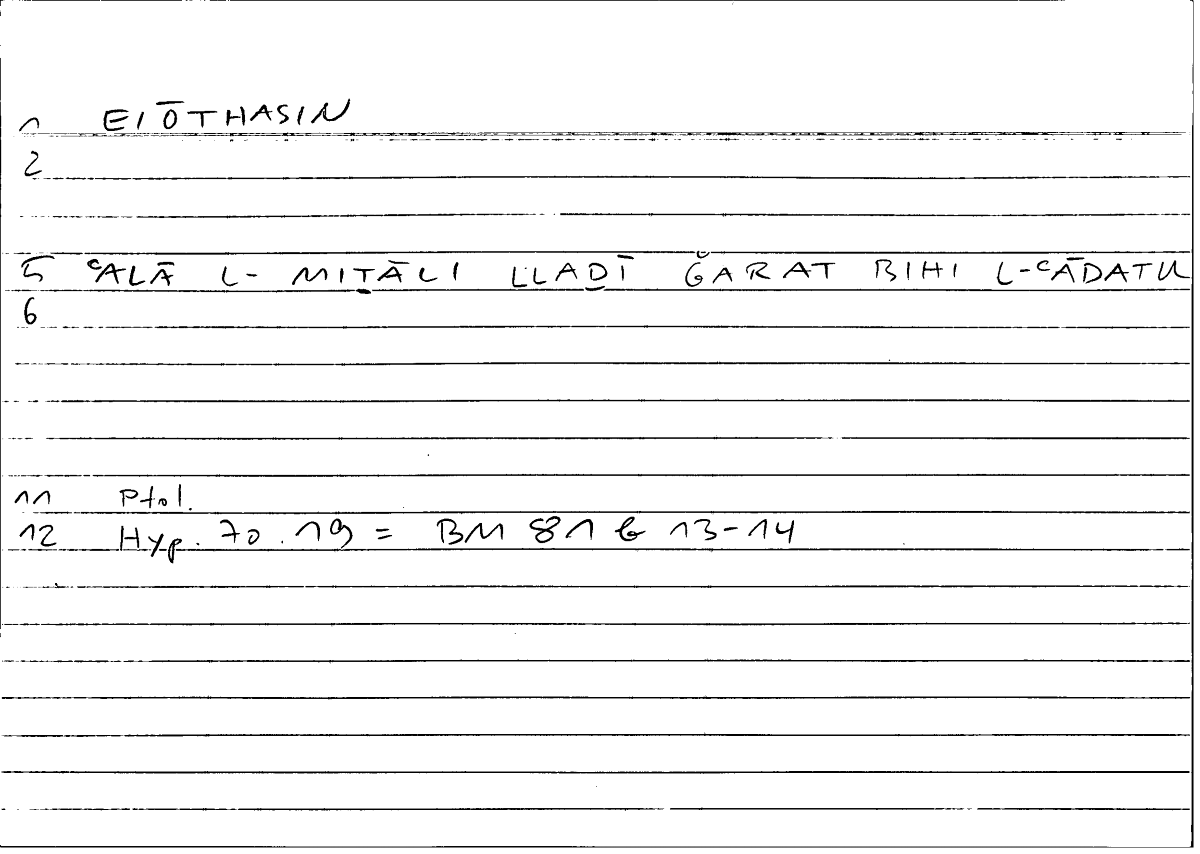 1 EIŌTHASIN
2
5 ʿALĀ L- MIṮĀLI LLAḎĪ ǦARAT BIHI L-ʿĀDATU
6
11 Ptol.
12 Hyp. 70.19 = BM 81 b 13-14